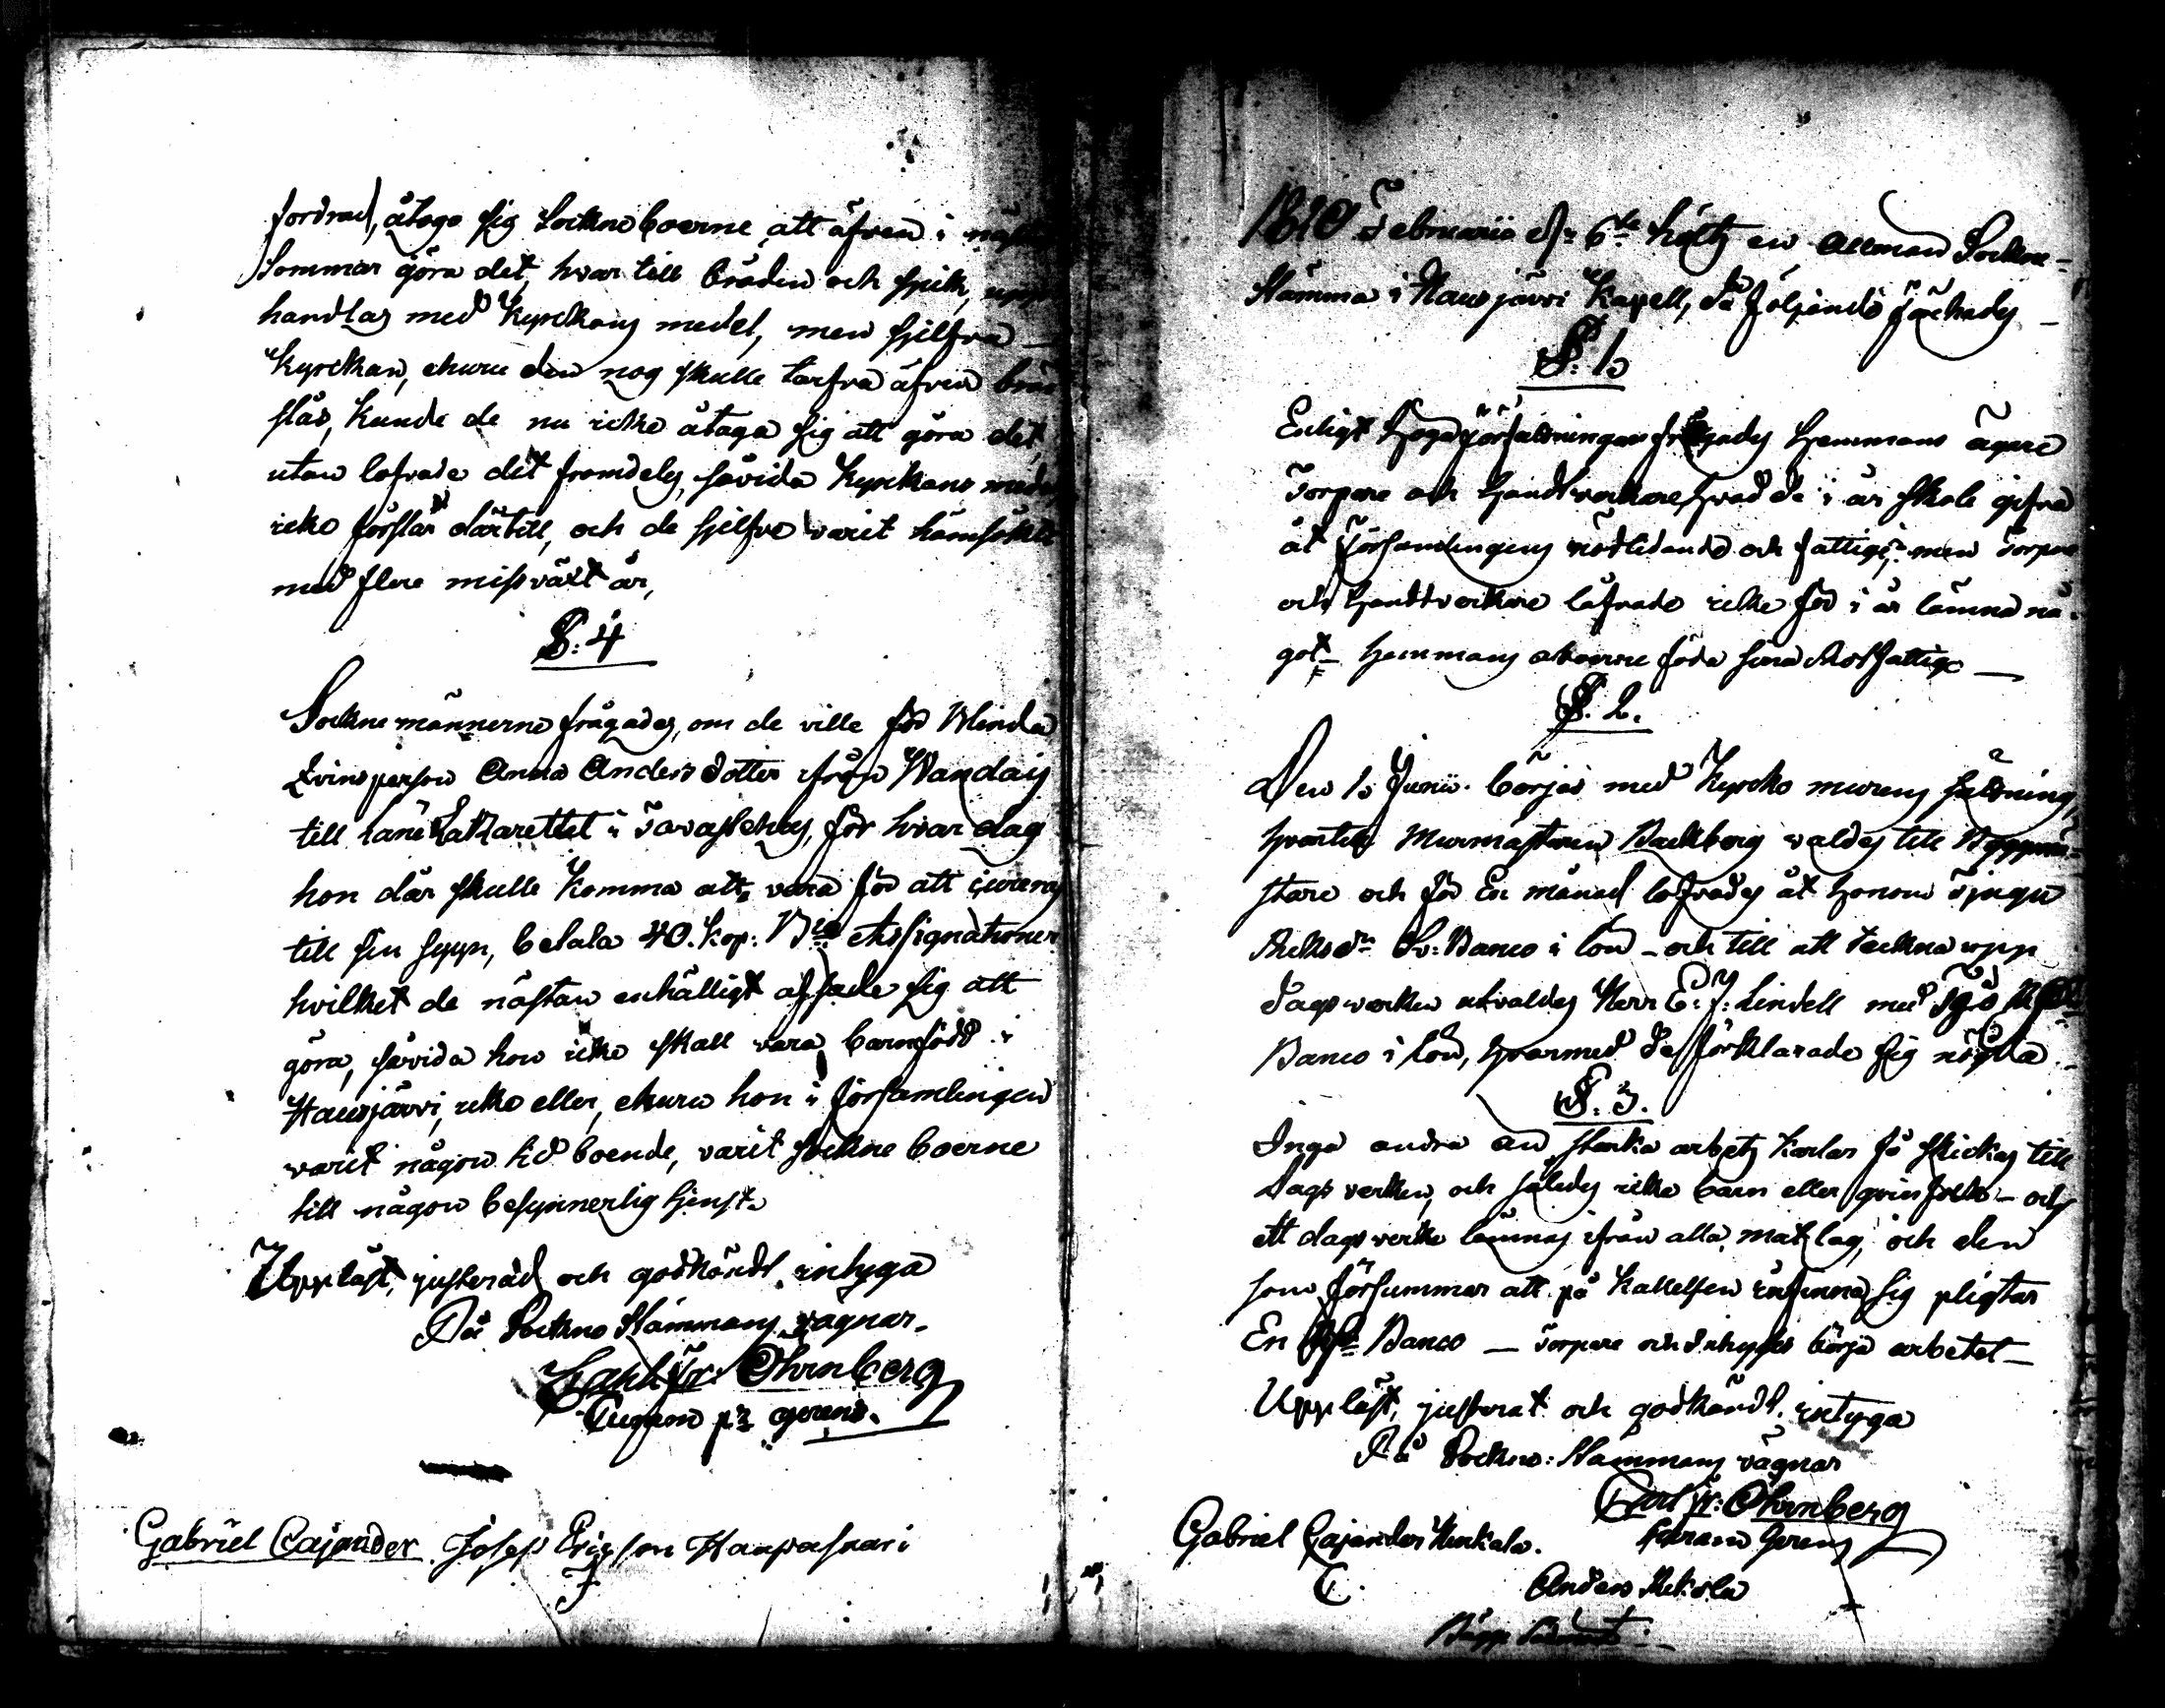 fordrad, åtogo sig Sockneboerne att äfven i nästa
Sommar göra det, hvar till bräden och spik, upp
handlas med Kyrckans medel, men sjelfva
Kyrckan, ehuru den nog skulle tarfva äfven
slås, kunde de nu icke åtaga sig att göra det,
utan lofvade det framdeles, såvida Kyrckans medel
icke förslår därtill, och de sjelfve varit hämsökte
med flere missväxt år,
§: 4
Sockne männerne frågades, om de ville för Blinda
Qvinsperson Anna Anders dotter ifrån Wandais
till läns Latzarettet i Tavastehus, för hvar dag
hon där skulle komma att vara för att cureras
till sin syn, betala 40. kop: B:co Assignationer
hvilket de nästan enhälligt afsade sig att
göra, såvida hon icke skall vara barnfödd i
Hausjärvi, icke eller, ehuru hon i församlingen
varit någon tid boende, varit sockne boerne
till någon besynnerlig tjenst.
Uppläst, justerad och godkändt, intyga
På Sockne Stämmans vägnar.
Öhrnberg
Curam p: gerens.
Gabriel Cajander. Josep Ericsson Haapasaari
1810 Februarii d: 6te hölts en Allmän Sockne-
Stämma i Hausjärvi Kapell, då följande förehades
§: 1.
Enligt Höga författningar frågades Hemmans ägare
Torpare och Handtverkare, hvad de i år skole gifva
åt Församlingens nödlidande och fattige; men Torpare
och Handtverkare låfvade icke för i år lämna nå-
got - Hemmans åboerne föda sina Rotfattige
§. 2.
Den 1. Junii börjas med Kyrcko murens sättning,
hvartill Murmästaren Backberg valdes till Byggmä-
stare och för En månad lofvades åt honom Tjugu
Riksdr Sv: Banco i lön - och till att teckna upp
dagsverken utvaldes Herr E: J: Lindell med Tijo R
Banco i lön, hvarmed de förklarade sig nöjda.
§. 3.
Inga andra än starka arbets karlar få skickas till
dags verken, och således icke barn eller qvinfolk - och
ett dagsverke lämnas ifrån alla matlag, och den
som försummar att på kallelsen infinna sig pligtar
En Rd Banco - Torpare och Inhyses börja arbetet -
Uppläst, justerat och godkändt, intyga
På Sockne: Stämmans vägnar
Carl Fr: Öhrnberg
Curam Gerens
Gabriel Cajander Kurkela.
Anders Mekola